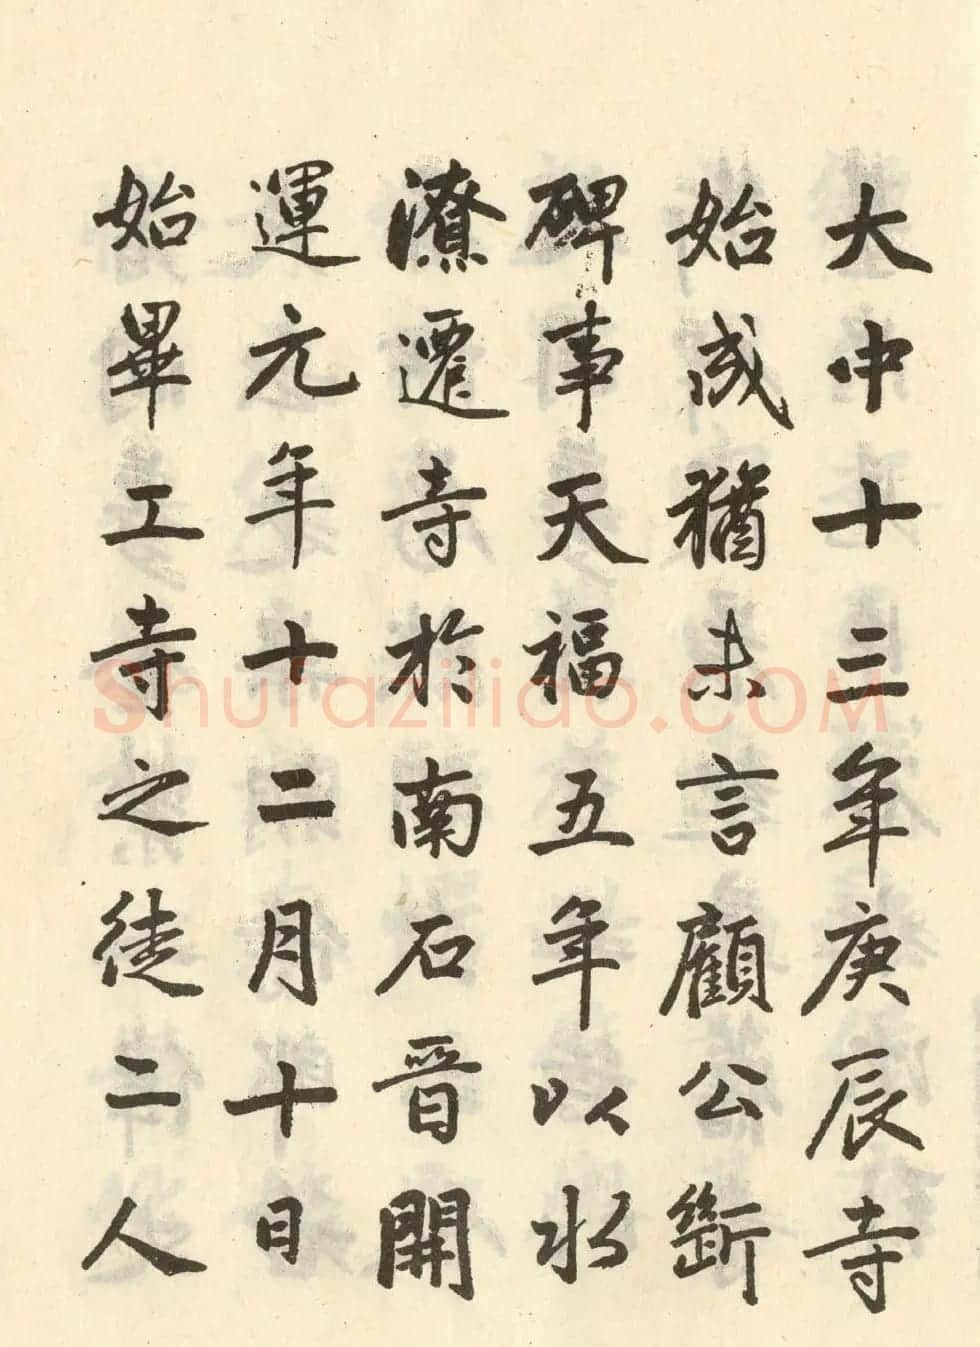 大中十三年庚辰寺
始成猶未言顧公斷
碑事天福五年以水
潦遷寺於南石晉開
運元年十二月十日
始畢工寺之徒二人
Shufaziliao.COM